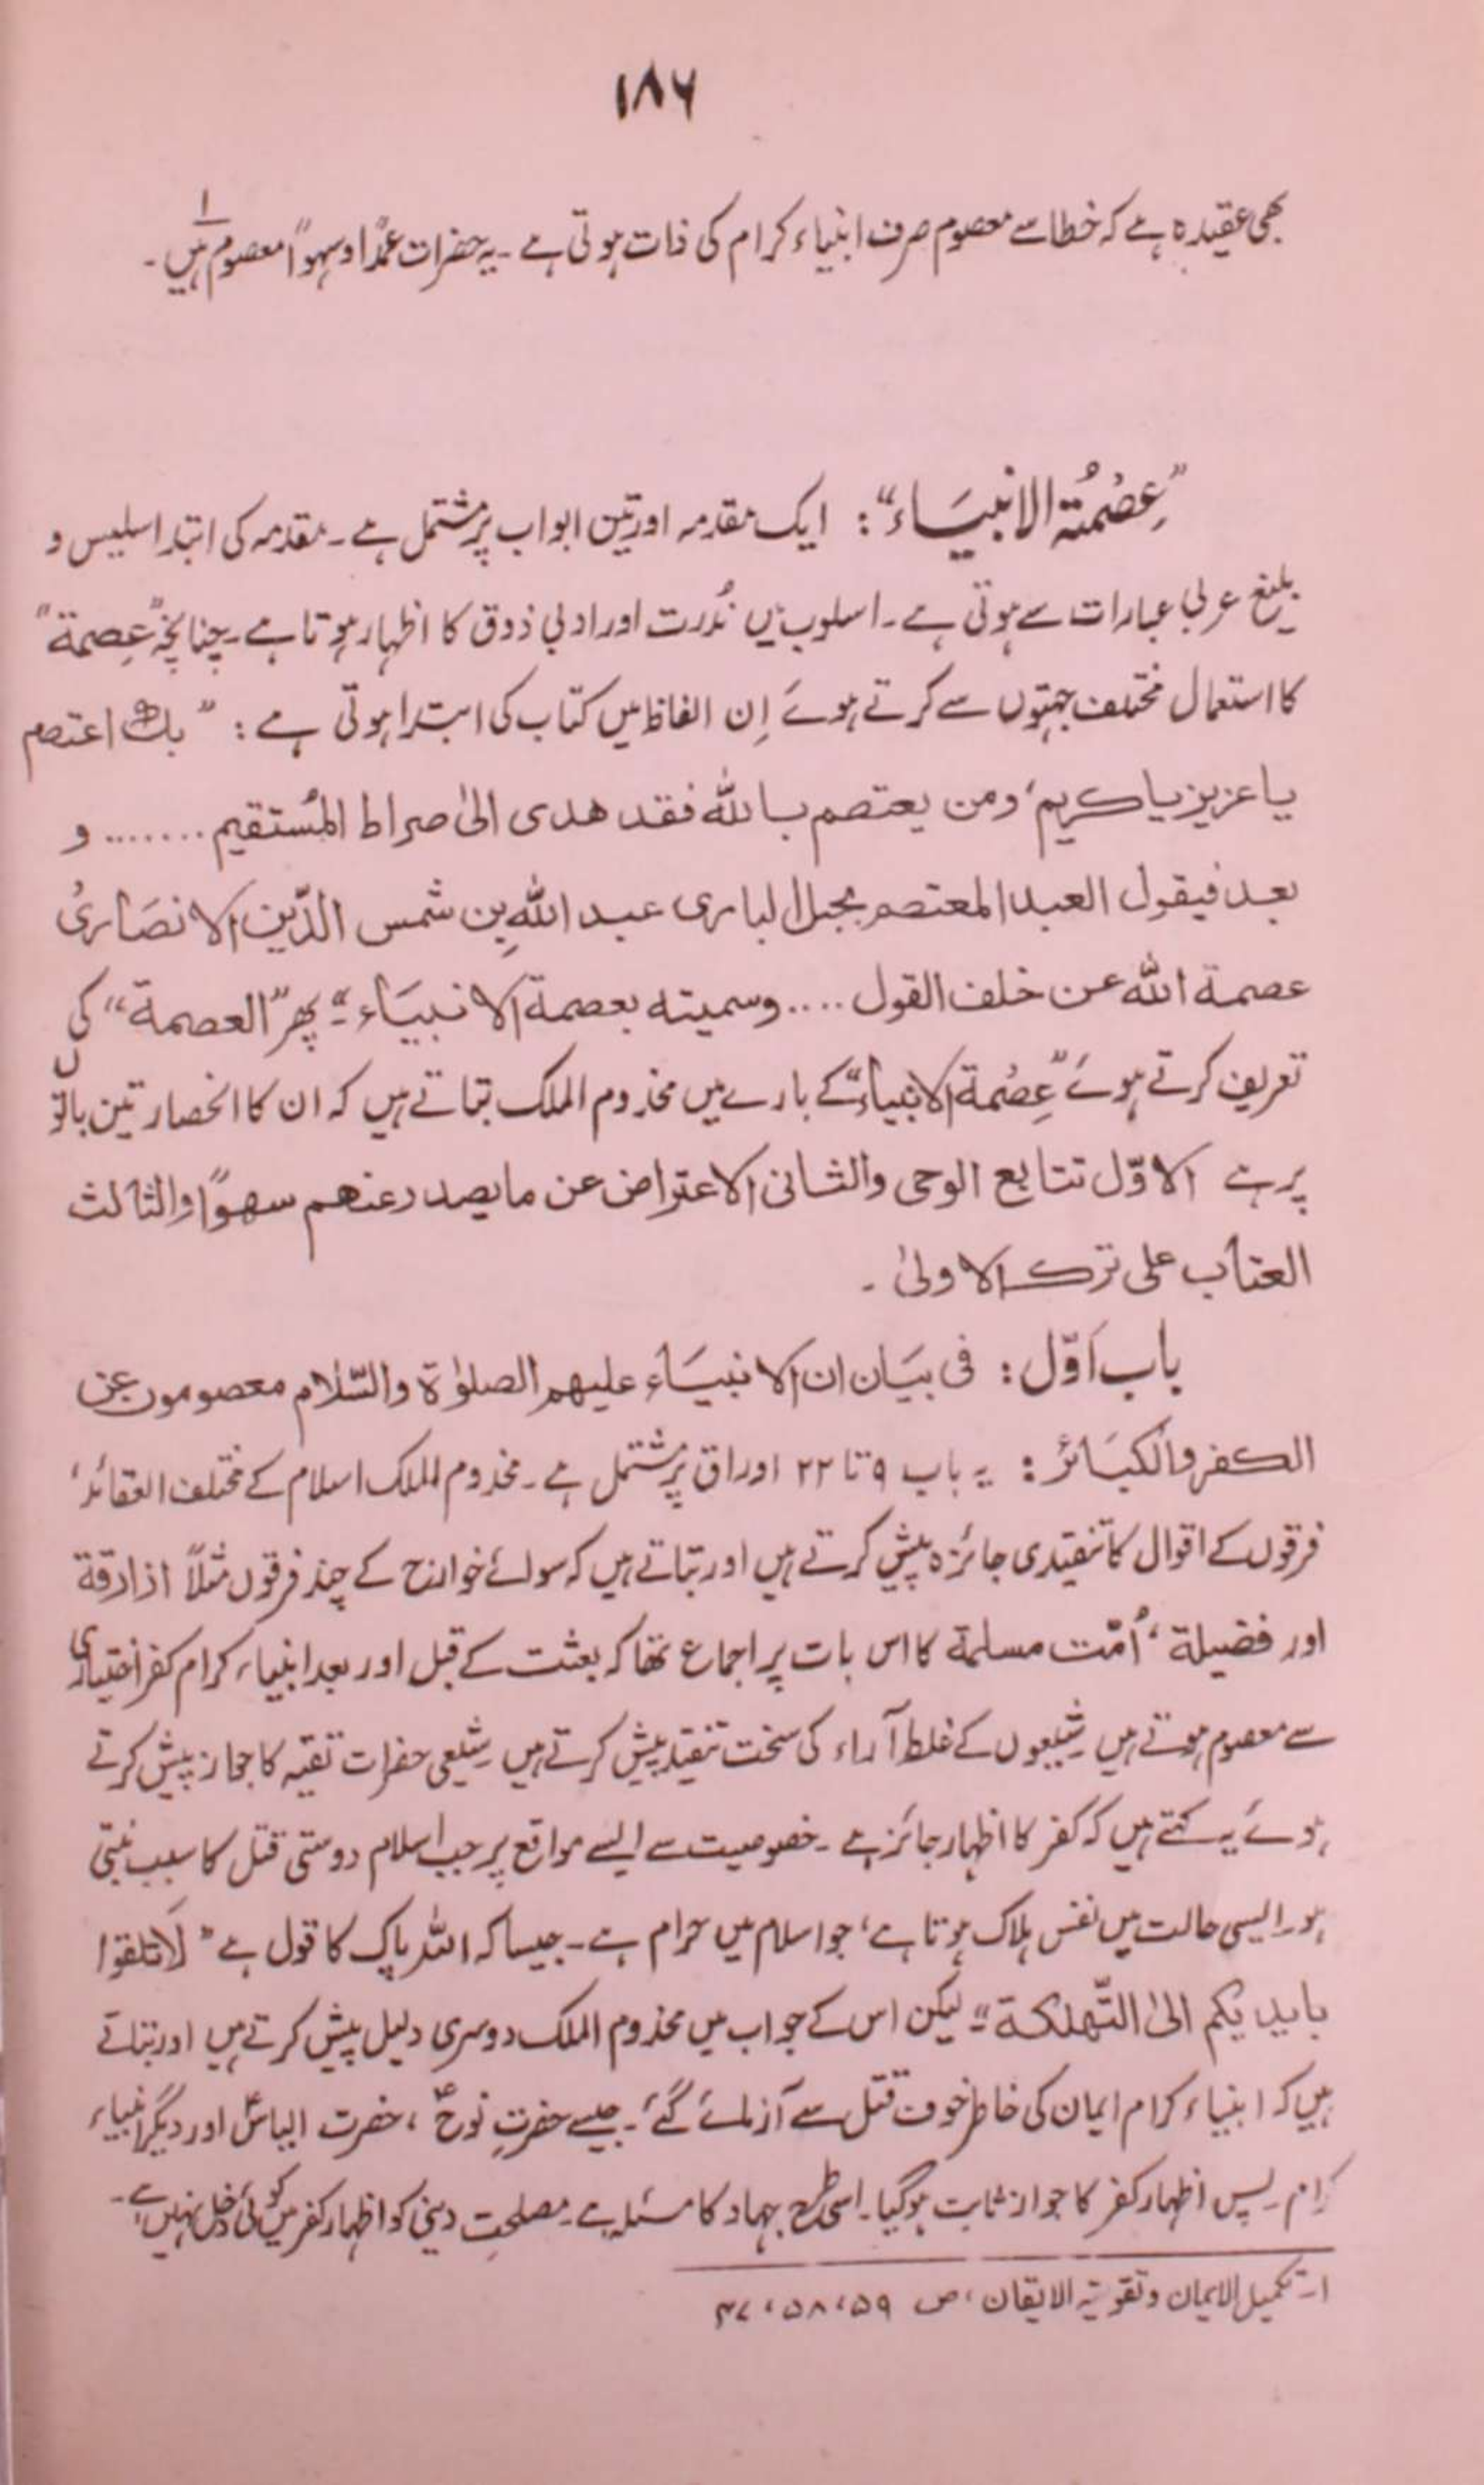 ۱۸۶
بھی عقیدہ ہے کہ خطا سے معصوم صرف انبیاء کرام کی ذات ہوتی ہے ۔ یہ حضرات عمدًا وسہوًا معصوم ہیں ۔ ۱
”عِصْمۃُ الانبیَاء“ : ایک مقدمہ اور تین ابواب پر مشتمل ہے ۔ مقدمہ کی ابتدا سلیس و
بلیغ عربی عبارات سے ہوتی ہے ۔ اسلوب میں نُدرت اور ادبی ذوق کا اظہار ہوتا ہے ۔ چنانچہ ”عِصمة“
کا استعمال مختلف جہتوں سے کرتے ہوئے اِن الفاظ میں کتاب کی ابتدا ہوتی ہے : ” بك اعتصم
یا عزیز یا کریم، ومن یعتصم باللّٰہ فقد ھدی الیٰ صراط المُستقیم ....... و
بعد فیقول العبد المعتصم بحبل الباری عبد اللّٰہِ بن شمس الدّین الانصَاریُ
عصمة اللّٰہ عن خلف القول .... وسمیتہ بعصمة الانبیَاء “۔ پھر ”العصمة“ کی
تعریف کرتے ہوئے ”عِصْمة الانبیاء“ کے بارے میں مخدوم الملک بتاتے ہیں کہ ان کا انحصار تین باتوں
پر ہے الاوّل تتابع الوحی والثانی الاعتراض عن ما یصدر عنھم سھوًا والثالث
العتاب علی ترک الاولیٰ ۔
باب اَوّل : فی بیَان ان الانبیَاء علیھم الصلوٰۃ والسّلام معصومون عن
الکفر والکبَائر : یہ باب ۹ تا ۲۲ اوراق پر مشتمل ہے ۔ مخدوم الملک اسلام کے مختلف العقائد،
فرقوں کے اقوال کا تنقیدی جائزہ پیش کرتے ہیں اور بتاتے ہیں کہ سوائے خوارج کے چند فرقوں مثلاً ازارقة
اور فضیلة ، اُمّت مسلمة کا اس بات پر اجماع تھا کہ بعثت کے قبل اور بعد انبیاء کرام کفر اختیاری
سے معصوم ہوتے ہیں شیعوں کے غلط آراء کی سخت تنقید پیش کرتے ہیں شیعی حضرات تقیہ کا جواز پیش کرتے
ہوئے یہ کہتے ہیں کہ کفر کا اظہار جائز ہے ۔ خصوصیت سے ایسے مواقع پر جب اسلام دوستی قتل کا سبب بنتی
ہو۔ ایسی حالت میں نفس ہلاک ہوتا ہے، جو اسلام میں حرام ہے ۔ جیسا کہ اللہ پاک کا قول ہے ” لَا تلقوا
بایدیکم الیٰ التّھلکة “۔ لیکن اس کے جواب میں مخدوم الملک دوسری دلیل پیش کرتے ہیں اور بتاتے
ہیں کہ انبیاء کرام ایمان کی خاطر خوف قتل سے آزمائے گئے ۔ جیسے حضرتِ نوحؑ ، حضرت الیاسؑ اور دیگر انبیاء
کرام ۔ پس اظہار کفر کا جواز ثابت ہوگیا ۔ اسی طرح جہاد کا مسئلہ ہے ۔ مصلحتِ دینی کو اظہار کفر میں کوئی دخل نہیں ہے ۔
۱ ۔ تکمیل الایمان وتقویة الایقان ، ص ۵۹ ، ۵۸ ،